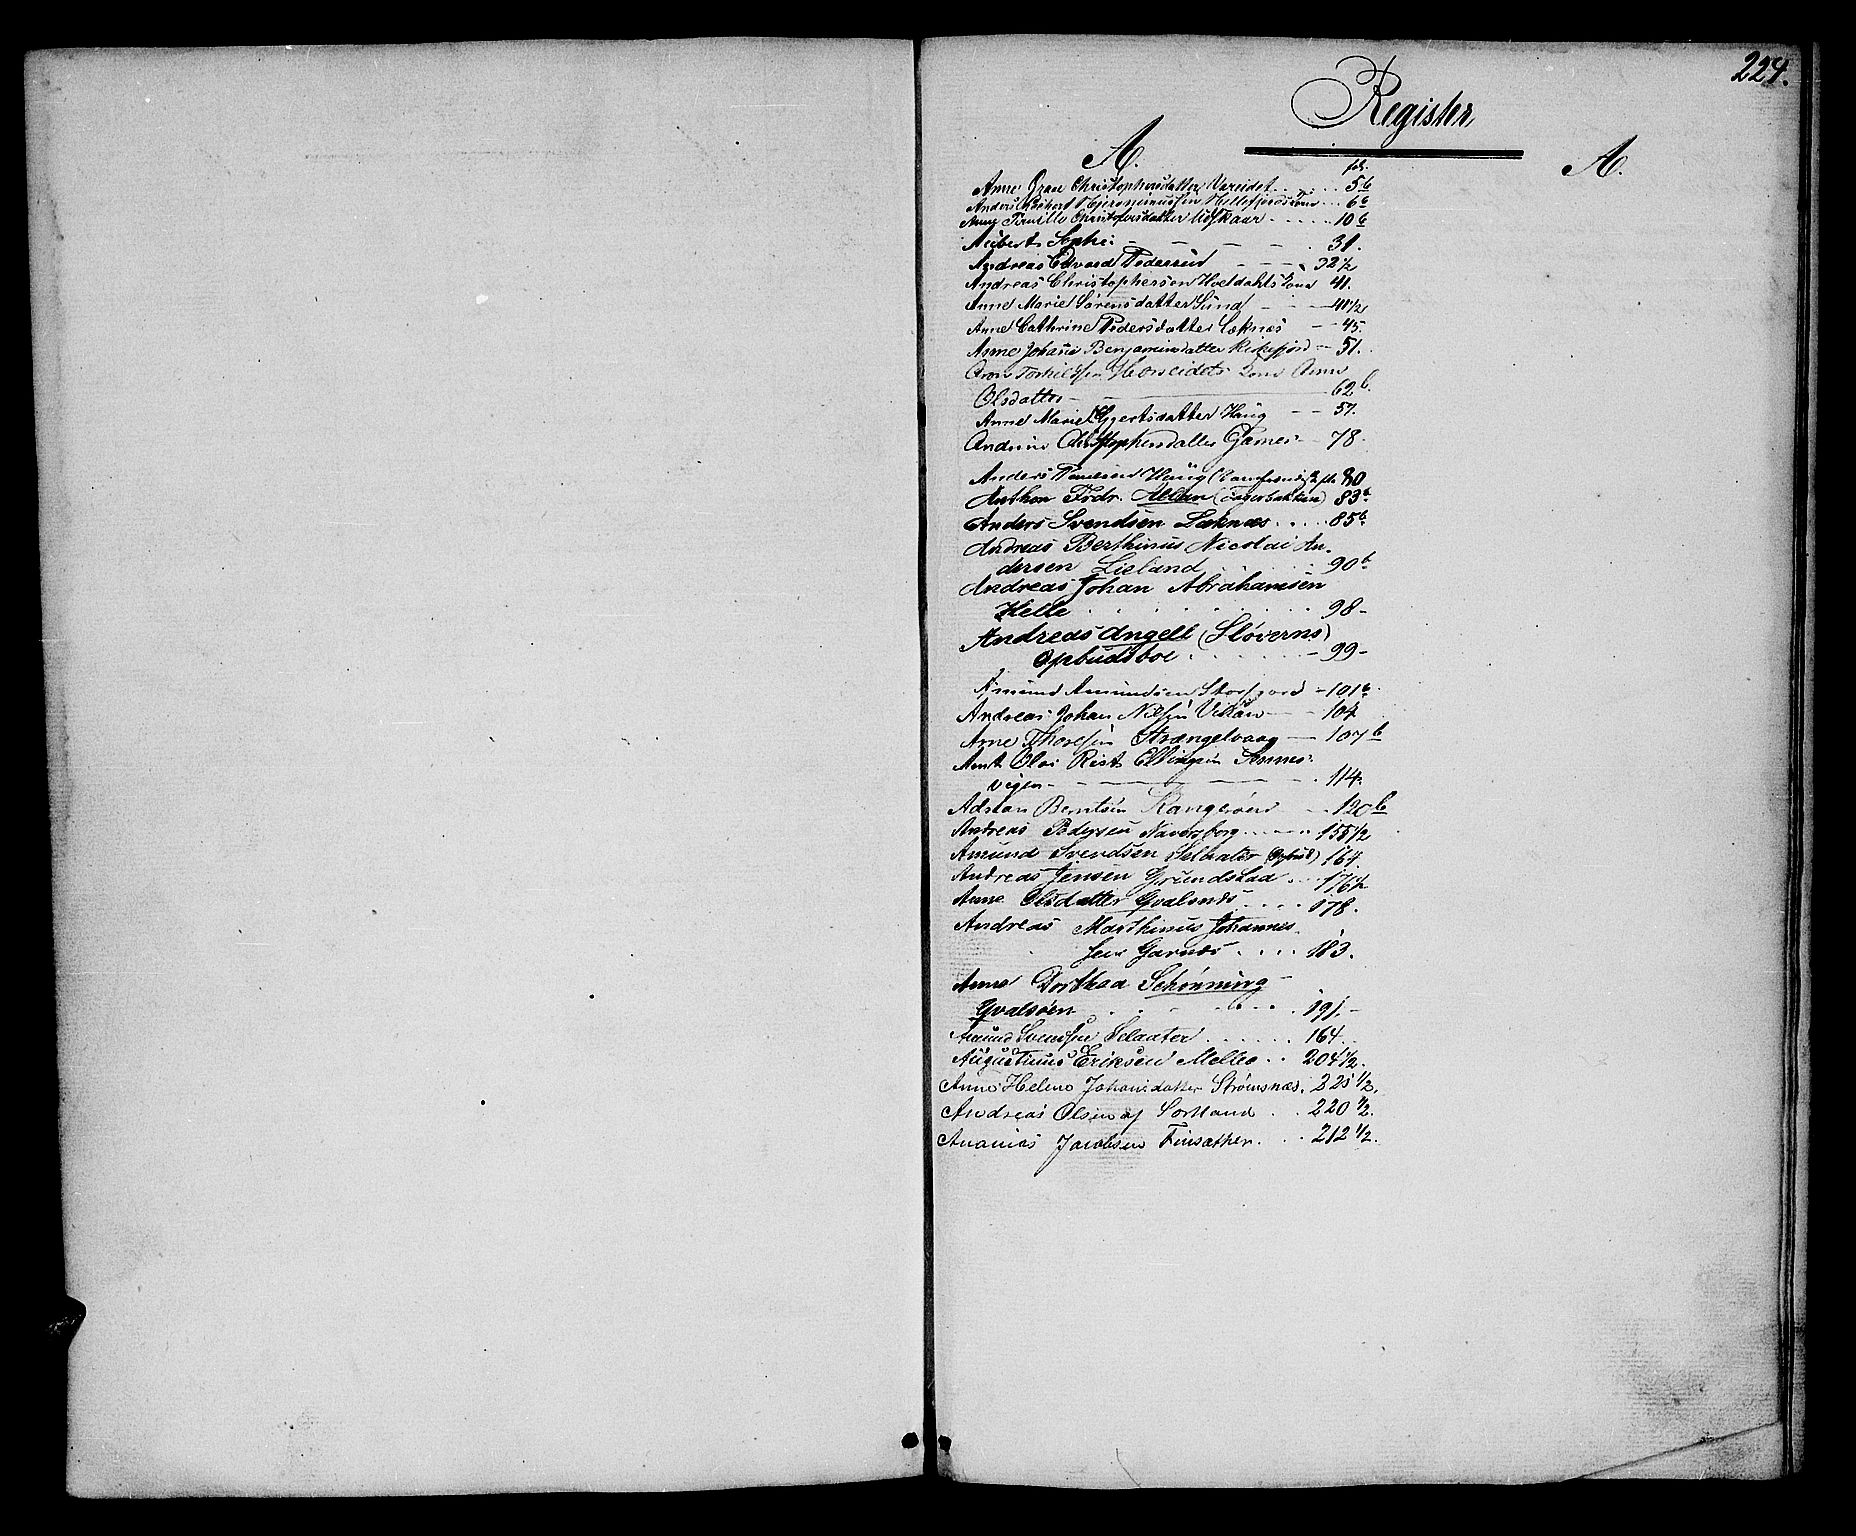 224.
Register
A. A.
fol.
Anne Christophersdatter Vareidet 5b
Anders Hieronimussen 6b
Anne Pernille Christophersdatter 10b
Aubert Sophie 31.
Andreas Edvard Pedersen 32½
Andreas Christophersen Hveldahls Kone 41.
Anne Marie Sørensdatter Sund 41½
Anne Cathrine Pedersdatter Læknæs 45.
Anne Johana Benjaminsdatter 51.
Aron Torkildsen Horseidets Kone Anne
Olsdatter 62b
Anne Marie Eggertsdatter Haug 57.
Andrine Christophersdatter 78.
Anders Haug 80
Anthon Fredr. 83b
Anders Svendsen Læknæs 85b
Andreas Berthinus Nicolai An-
dersen Lieland 90b
Andreas Johan Abrahamsen
Helle 98-
Andreas Angell (Sløverns)
Opbudsboe 99-
Amund Amundsen Storfjord 101b
Andreas Johan Nilsen Vikan 104
Arne Thoresen Strængelvaag 107b
Arnt Olai Rist Sannes-
vigen 114.
Adrian Berntsen 120b
Andreas Pedersen Naversborg 155½
Amund Svendsen Selaater (Opbud) 164.
Andreas Jensen Grundstad 176½
Anne Olsdatter 178.
Andreas Marthinus Johannes-
sen Garnæs 183.
Anne Dorthea Schønning
Qvalsøen 191.
Amund Svensen Selaater 164.
Augustinus Eriksen Melbo 204½.
Anne Helene Johansdatter Strømsnæs. 221½.
Andreas Olsen af Sortland 220½.
Ananias Jacobsen Finsæther. 212½.